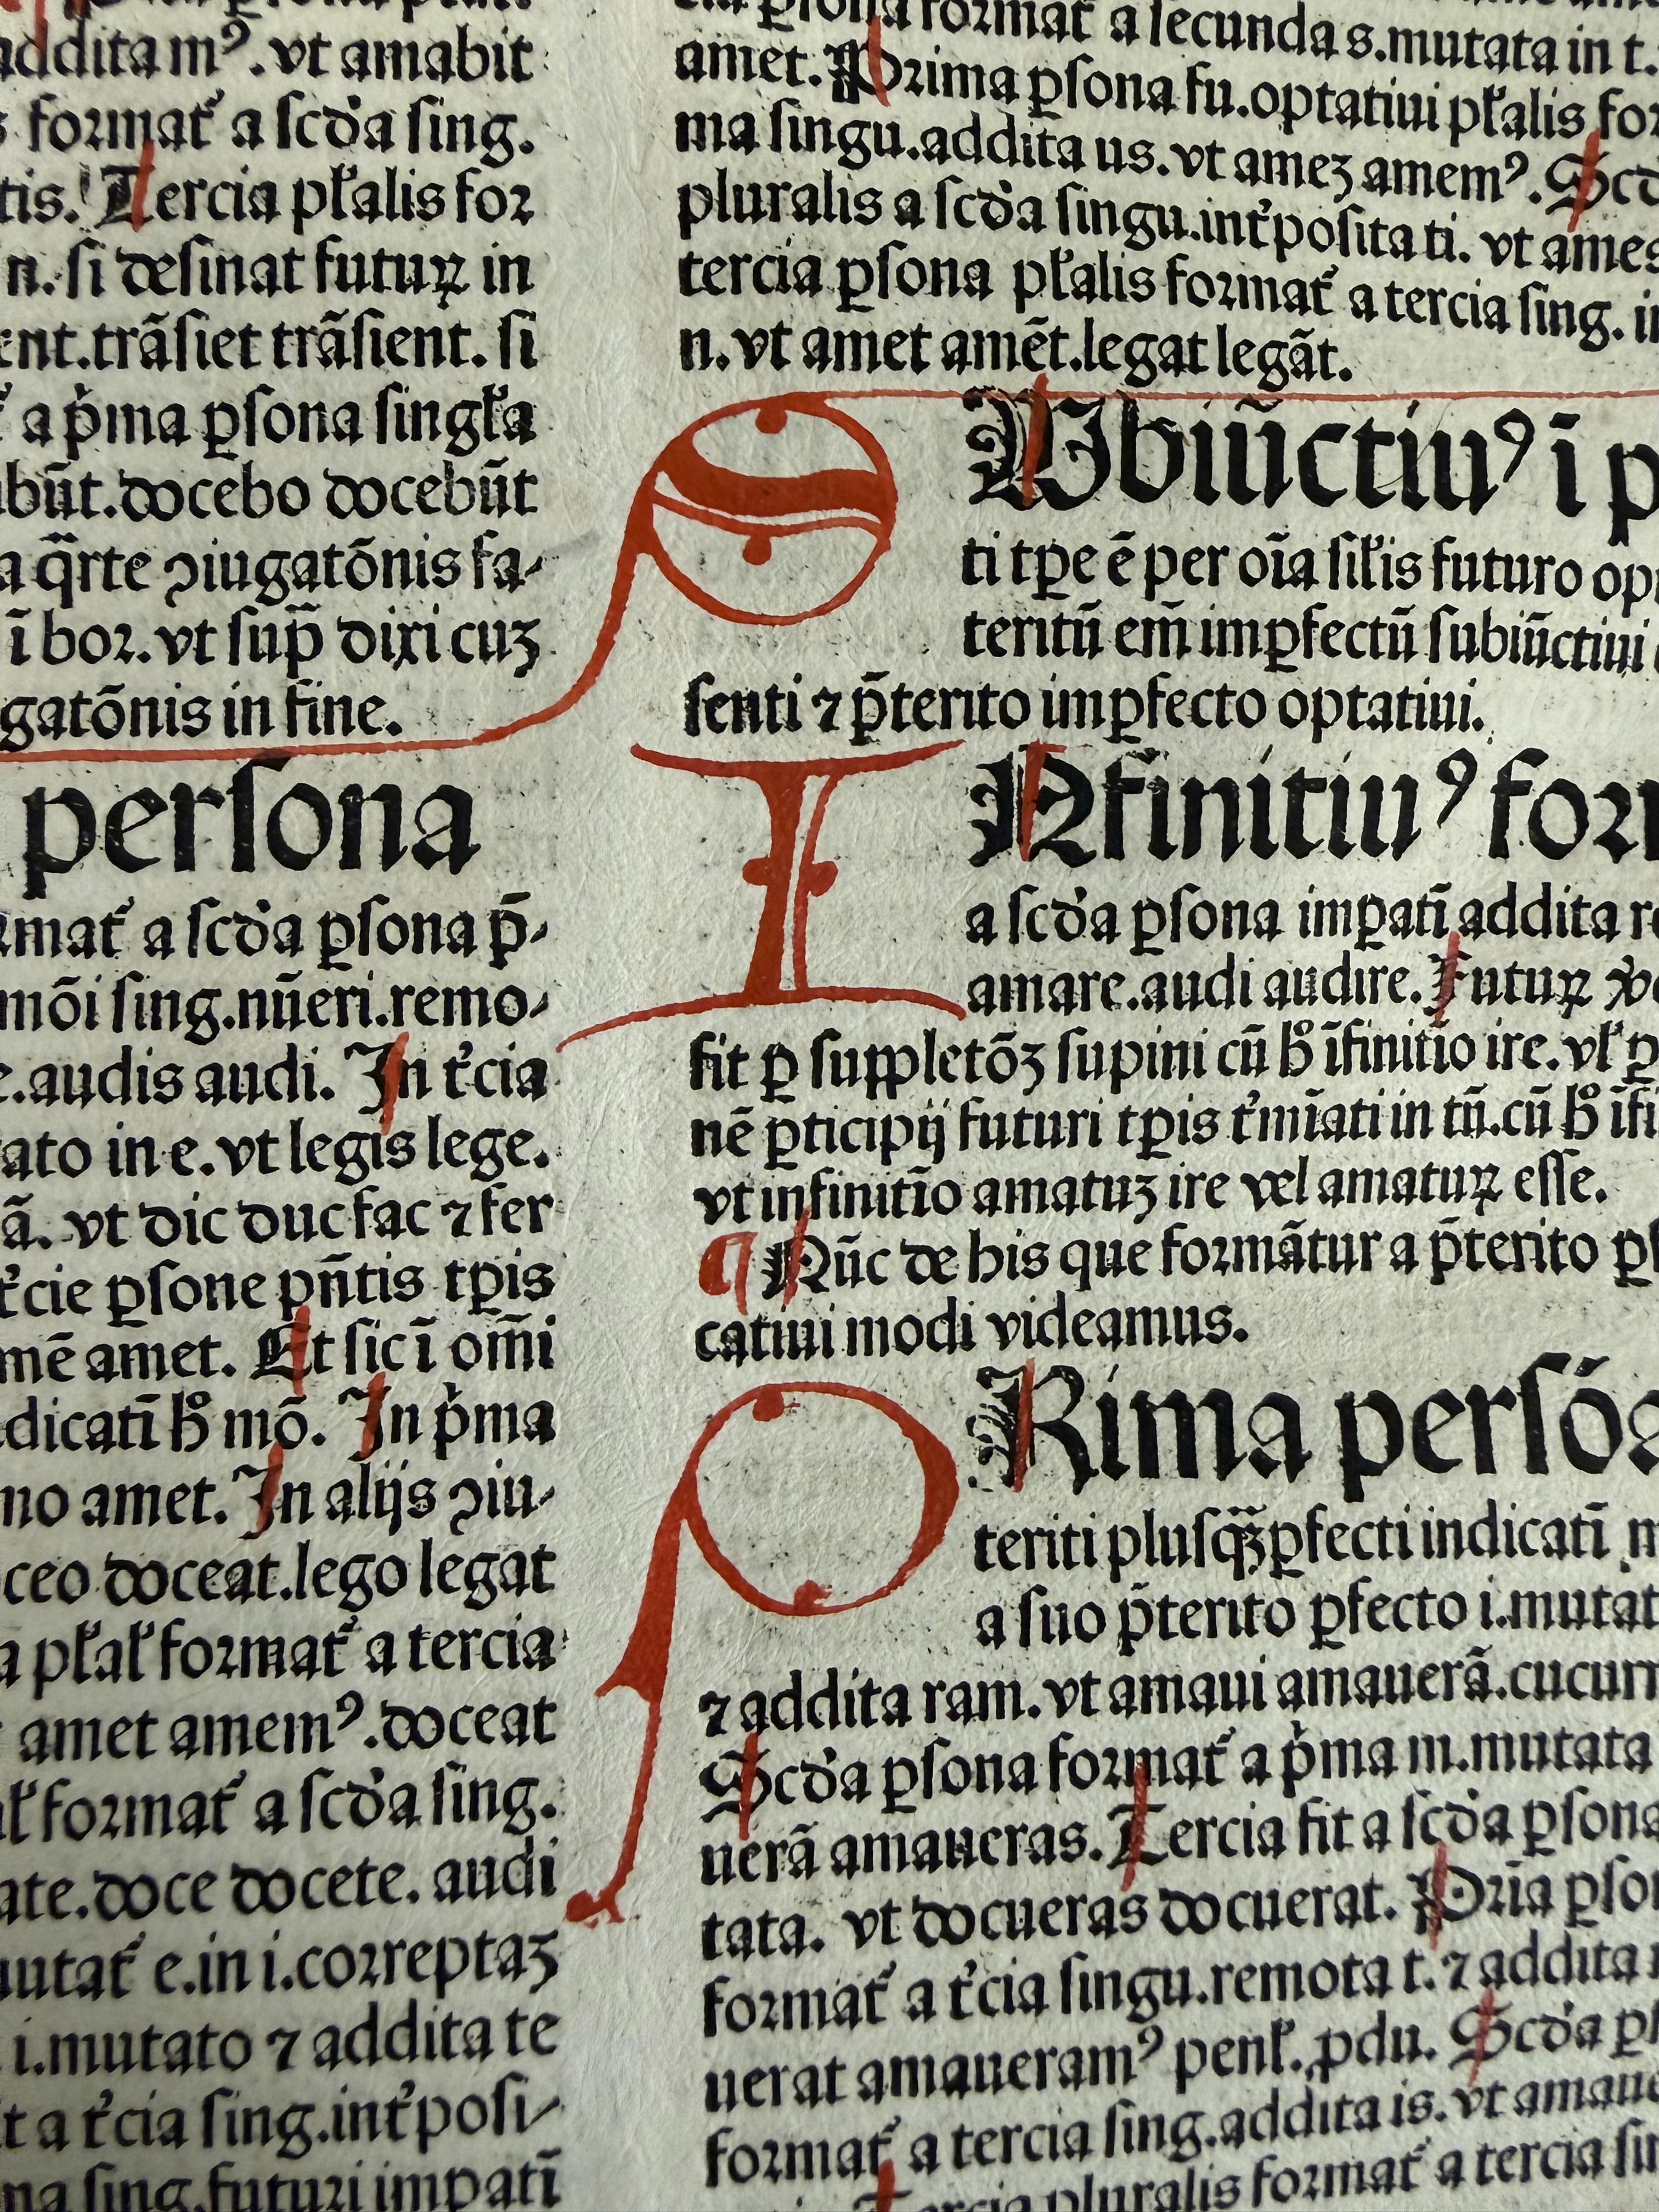 addita mꝰ. vt amabit
format᷑ a scd̓a sing.
tis. Tercia pl̓alis for
n. si desinat futuꝝ in
ent. trãsiet trãsient. si
a p̓ma ꝑsona singl̓a
bũt. docebo docebũt
a q̃rte ꝯiugatõnis fa⸗
ĩ bor. vt sup̃ dixi cuꝫ
gatõnis in fine.
persona
mat᷑ a scd̓a ꝑsona p̃⸗
mõi sing. nũeri. remo⸗
audis audi. In t᷑cia
ato in e. vt legis lege.
ã. vt dic duc fac ⁊ fer
t᷑cie ꝑsone pñtis tꝑis
mẽ amet. Et sic ĩ om̃i
dicatĩ hͦ mõ. In p̓ma
no amet. In alijs ꝯiu⸗
ceo doceat. lego legat
a pl̓al̓ format᷑ a tercia
amet amemꝰ. doceat
l̓ format᷑ a scd̓a sing.
ate. doce docete. audi
mutat᷑ e. in i. correptaꝫ
i. mutato ⁊ addita te
t a t᷑cia sing. int᷑posi⸗
na sing. futuri impatĩ
ꝑsona format᷑ a secunda s. mutata in t.
amet. Prima ꝑsona fu. optatiui pl̓alis for
ma singu. addita us. vt ameꝫ amemꝰ. Scd̓
pluralis a scd̓a singu. int᷑posita ti. vt ames
tercia ꝑsona pl̓alis format᷑ a tercia sing. in
n. vt amet amẽt. legat legãt.
S Vbiũctiuꝰ ĩ p
ti tꝑe ẽ per oĩa sil̓is futuro op
teritũ em̃ imꝑfectũ subiũctiui
senti ⁊ p̃terito imꝑfecto optatiui.
I Nfinitiuꝰ for
a scd̓a ꝑsona imꝑatĩ addita re
amare. audi audire. Futuꝝ
fit ꝑ suppletõꝫ supini cũ hͦ ĩfinitĩo ire. vl̓
nẽ ꝑticipij futuri tꝑis t᷑mĩati in tũ. cũ hͦ ĩfi
vt infinitĩo amatuꝫ ire vel amatuꝝ esse.
¶ Nũc de his que formãtur a p̃terito
catiui modi videamus.
P Rima persõa
teriti plusqꝫ̃ꝑfecti indicatĩ m
a suo p̃terito ꝑfecto i. mutat
⁊ addita ram. vt amaui amauerã. cucurr
Scd̓a ꝑsona format᷑ a p̓ma m. mutata
uerã amaueras. Tercia fit a scd̓a ꝑsona
tata. vt docueras docuerat. Pria ꝑson
format᷑ a t᷑cia singu. remota t. ⁊ addita
uerat amaueramꝰ penl̓. ꝓdu. Scd̓a pl
format᷑ a tercia sing. addita is. vt amaue
Tercia pluralis format᷑ a tercia sin